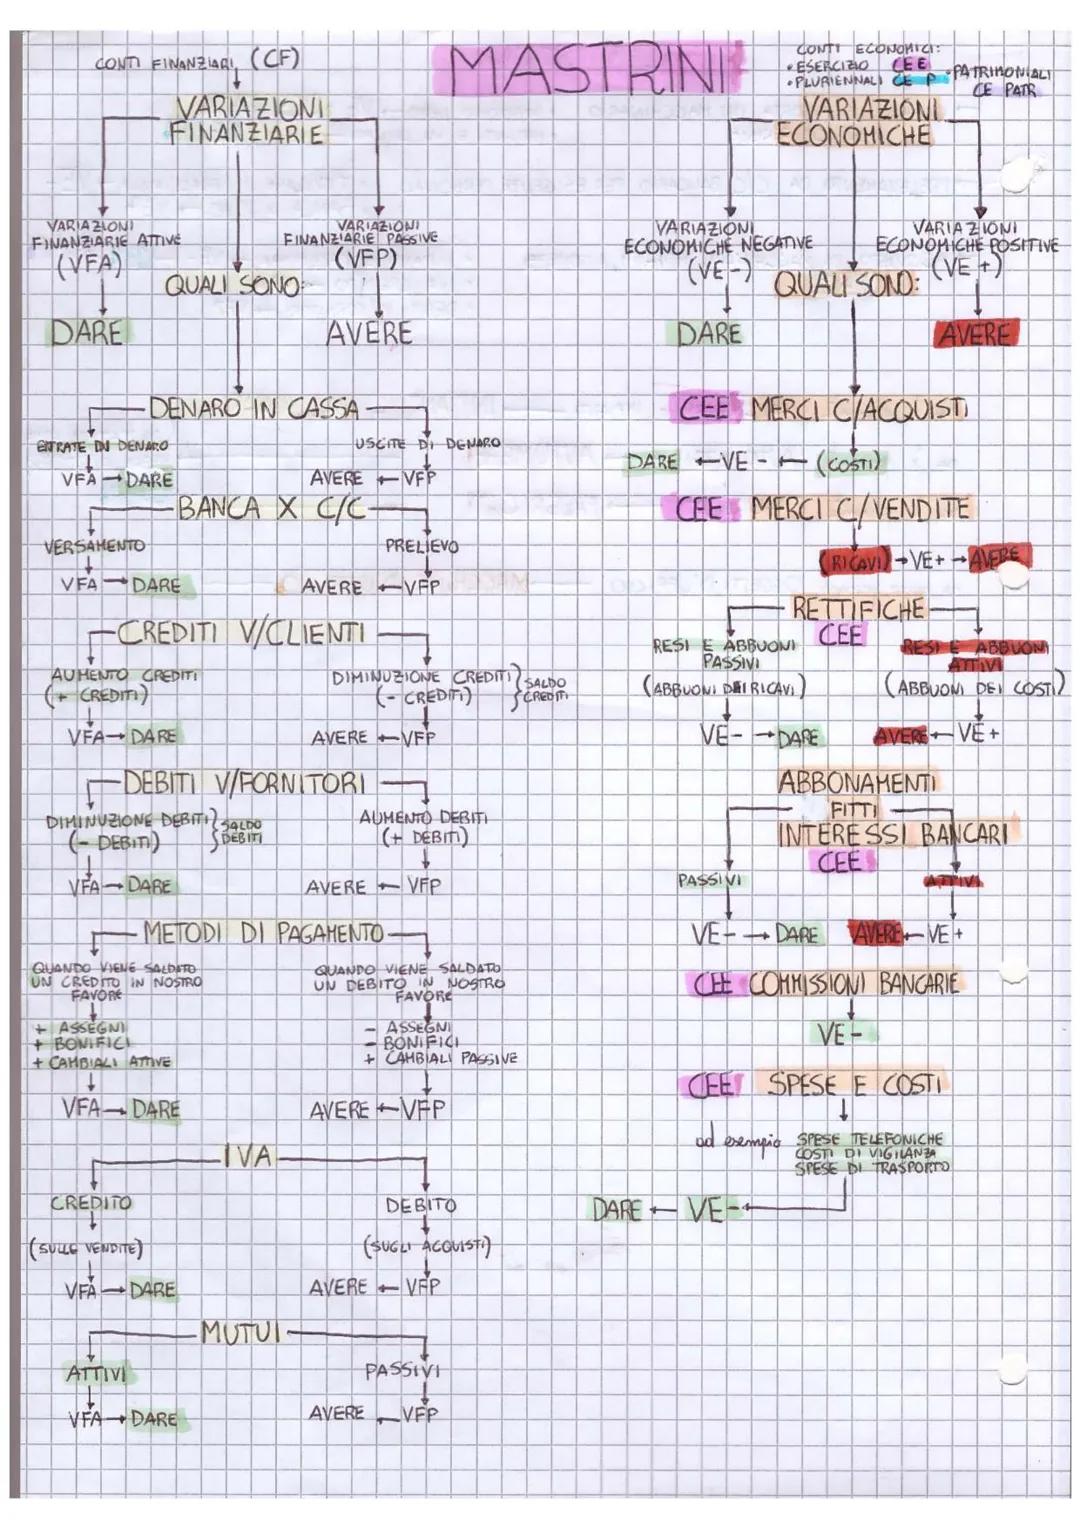 MASTRINI
CONTI FINANZIARI (CF)
VARIAZIONI
FINANZIARIE
VARIAZIONI
FINANZIARIE ATTIVE
(VFA)
DARE
VARIAZIONI
FINANZIARIE PASSIVE
(VFP)
AVERE
QUALI SONO:
DENARO IN CASSA
ENTRATE DI DENARO
VFA → DARE
USCITE DI DENARO
AVERE ← VFP
BANCA X C/C
VERSAMENTO
VFA → DARE
PRELIEVO
AVERE ← VFP
CREDITI V/CLIENTI
AUMENTO CREDITI
(+ CREDITI)
VFA → DARE
DIMINUZIONE CREDITI
(- CREDITI)
} SALDO
CREDITI
AVERE ← VFP
DEBITI V/FORNITORI
DIMINUZIONE DEBITI
(- DEBITI)
} SALDO
DEBITI
VFA → DARE
AUMENTO DEBITI
(+ DEBITI)
AVERE ← VFP
METODI DI PAGAMENTO
QUANDO VIENE SALDATO
UN CREDITO IN NOSTRO
FAVORE
+ ASSEGNI
+ BONIFICI
+ CAMBIALI ATTIVE
VFA → DARE
QUANDO VIENE SALDATO
UN DEBITO IN NOSTRO
FAVORE
- ASSEGNI
- BONIFICI
+ CAMBIALI PASSIVE
AVERE ← VFP
IVA
CREDITO
(SULLE VENDITE)
VFA → DARE
DEBITO
(SUGLI ACQUISTI)
AVERE ← VFP
MUTUI
ATTIVI
VFA → DARE
PASSIVI
AVERE ← VFP
CONTI ECONOMICI:
• ESERCIZIO CEE
• PLURIENNALI CE P
• PATRIMONIALI
CE PATR
VARIAZIONI
ECONOMICHE
VARIAZIONI
ECONOMICHE NEGATIVE
(VE -)
DARE
VARIAZIONI
ECONOMICHE POSITIVE
(VE +)
AVERE
QUALI SONO:
CEE MERCI C/ACQUISTI
DARE ← VE - ← (COSTI)
CEE MERCI C/VENDITE
(RICAVI) → VE+ → AVERE
RETTIFICHE
CEE
RESI E ABBUONI
PASSIVI
(ABBUONI DEI RICAVI)
VE- → DARE
RESI E ABBUONI
ATTIVI
(ABBUONI DEI COSTI)
AVERE ← VE+
ABBONAMENTI
FITTI
INTERESSI BANCARI
CEE
PASSIVI
VE- → DARE
ATTIVI
AVERE ← VE+
CEE COMMISSIONI BANCARIE
VE-
CEE SPESE E COSTI
ad esempio SPESE TELEFONICHE
COSTI DI VIGILANZA
SPESE DI TRASPORTO
DARE ← VE-